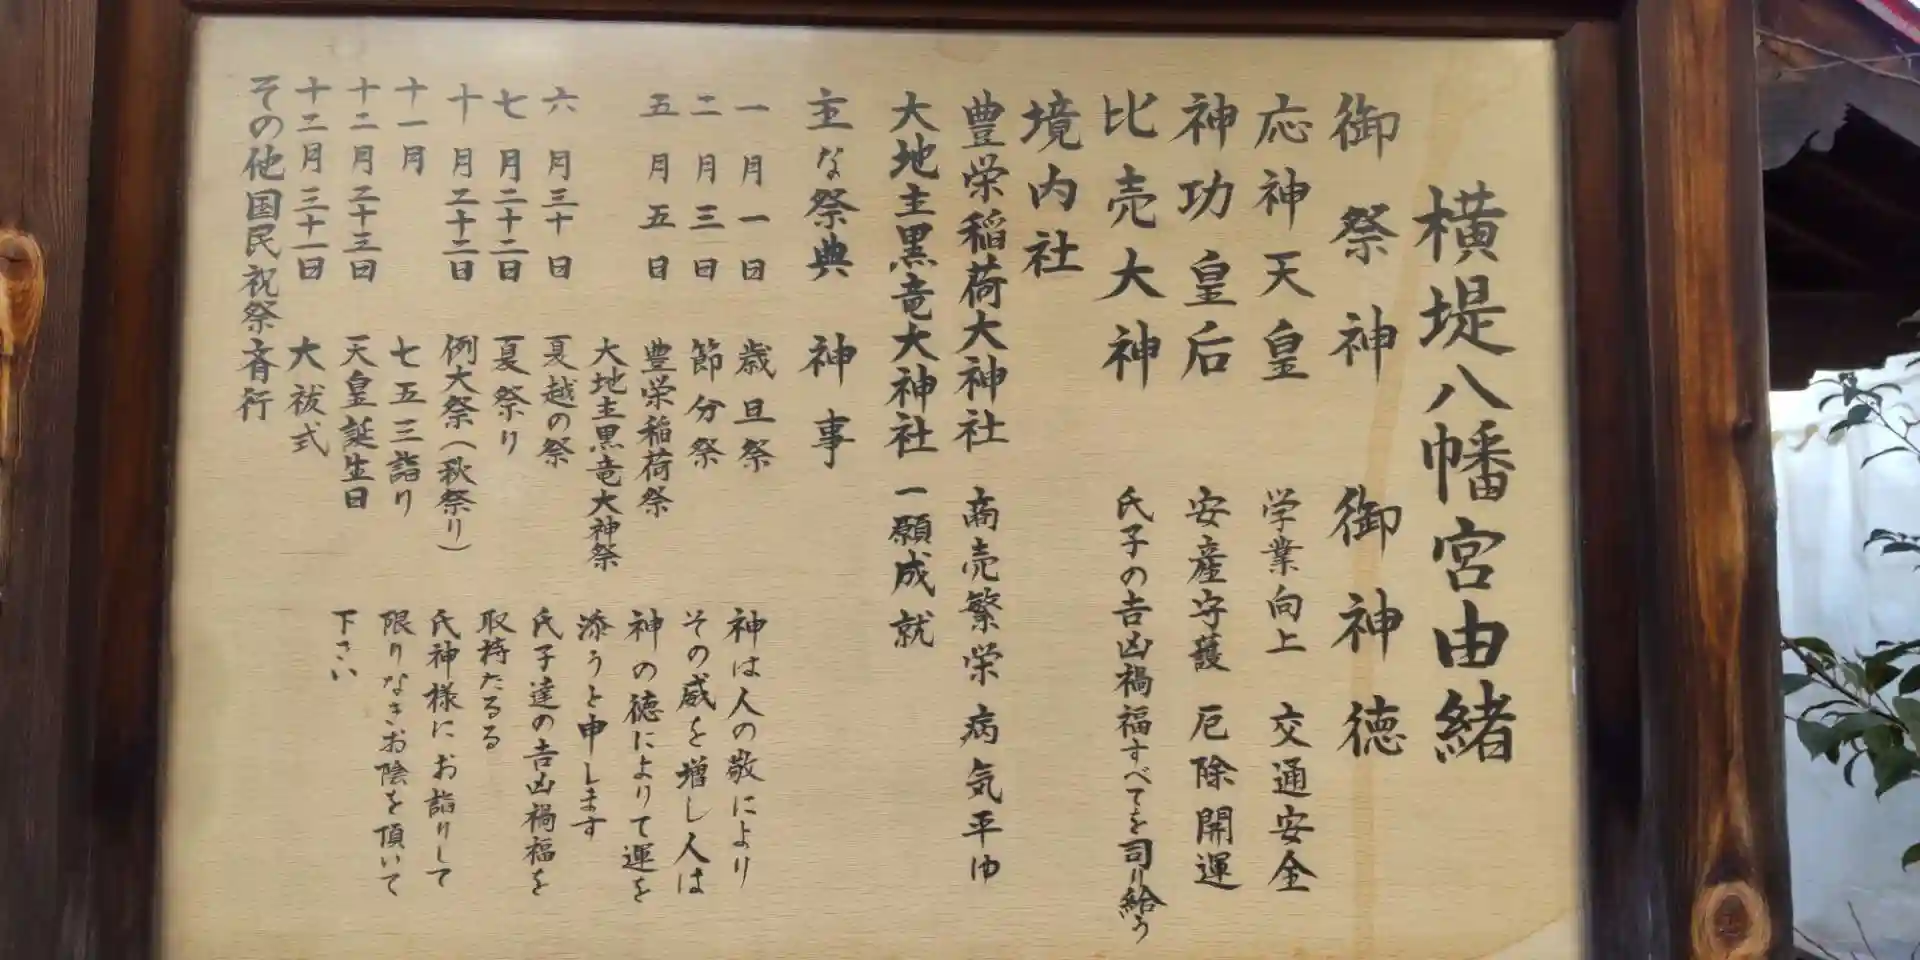 横堤八幡宮由緒
御祭神 御神徳
応神天皇 学業向上 交通安全
神功皇后 安産守護 厄除開運
比売大神 氏子の吉凶禍福すべてを司り給う
境内社
豊栄稲荷大神社 商売繁栄 病気平ゆ
大地主黒竜大神社 一願成就
主な祭典 神事
一月一日 歳旦祭
二月三日 節分祭
五月五日 豊栄稲荷祭
大地主黒竜大神祭
六月三十日 夏越の祭
七月二十二日 夏祭り
十月二十二日 例大祭(秋祭り)
十一月 七五三詣り
十二月二十三日 天皇誕生日
十二月三十一日 大祓式
その他国民祝祭斉行
神は人の敬により
その威を増し人は
神の徳によりて運を
添うと申します
氏子達の吉凶禍福を
取持たるる
氏神様にお詣りして
限りなきお陰を頂いて
下さい